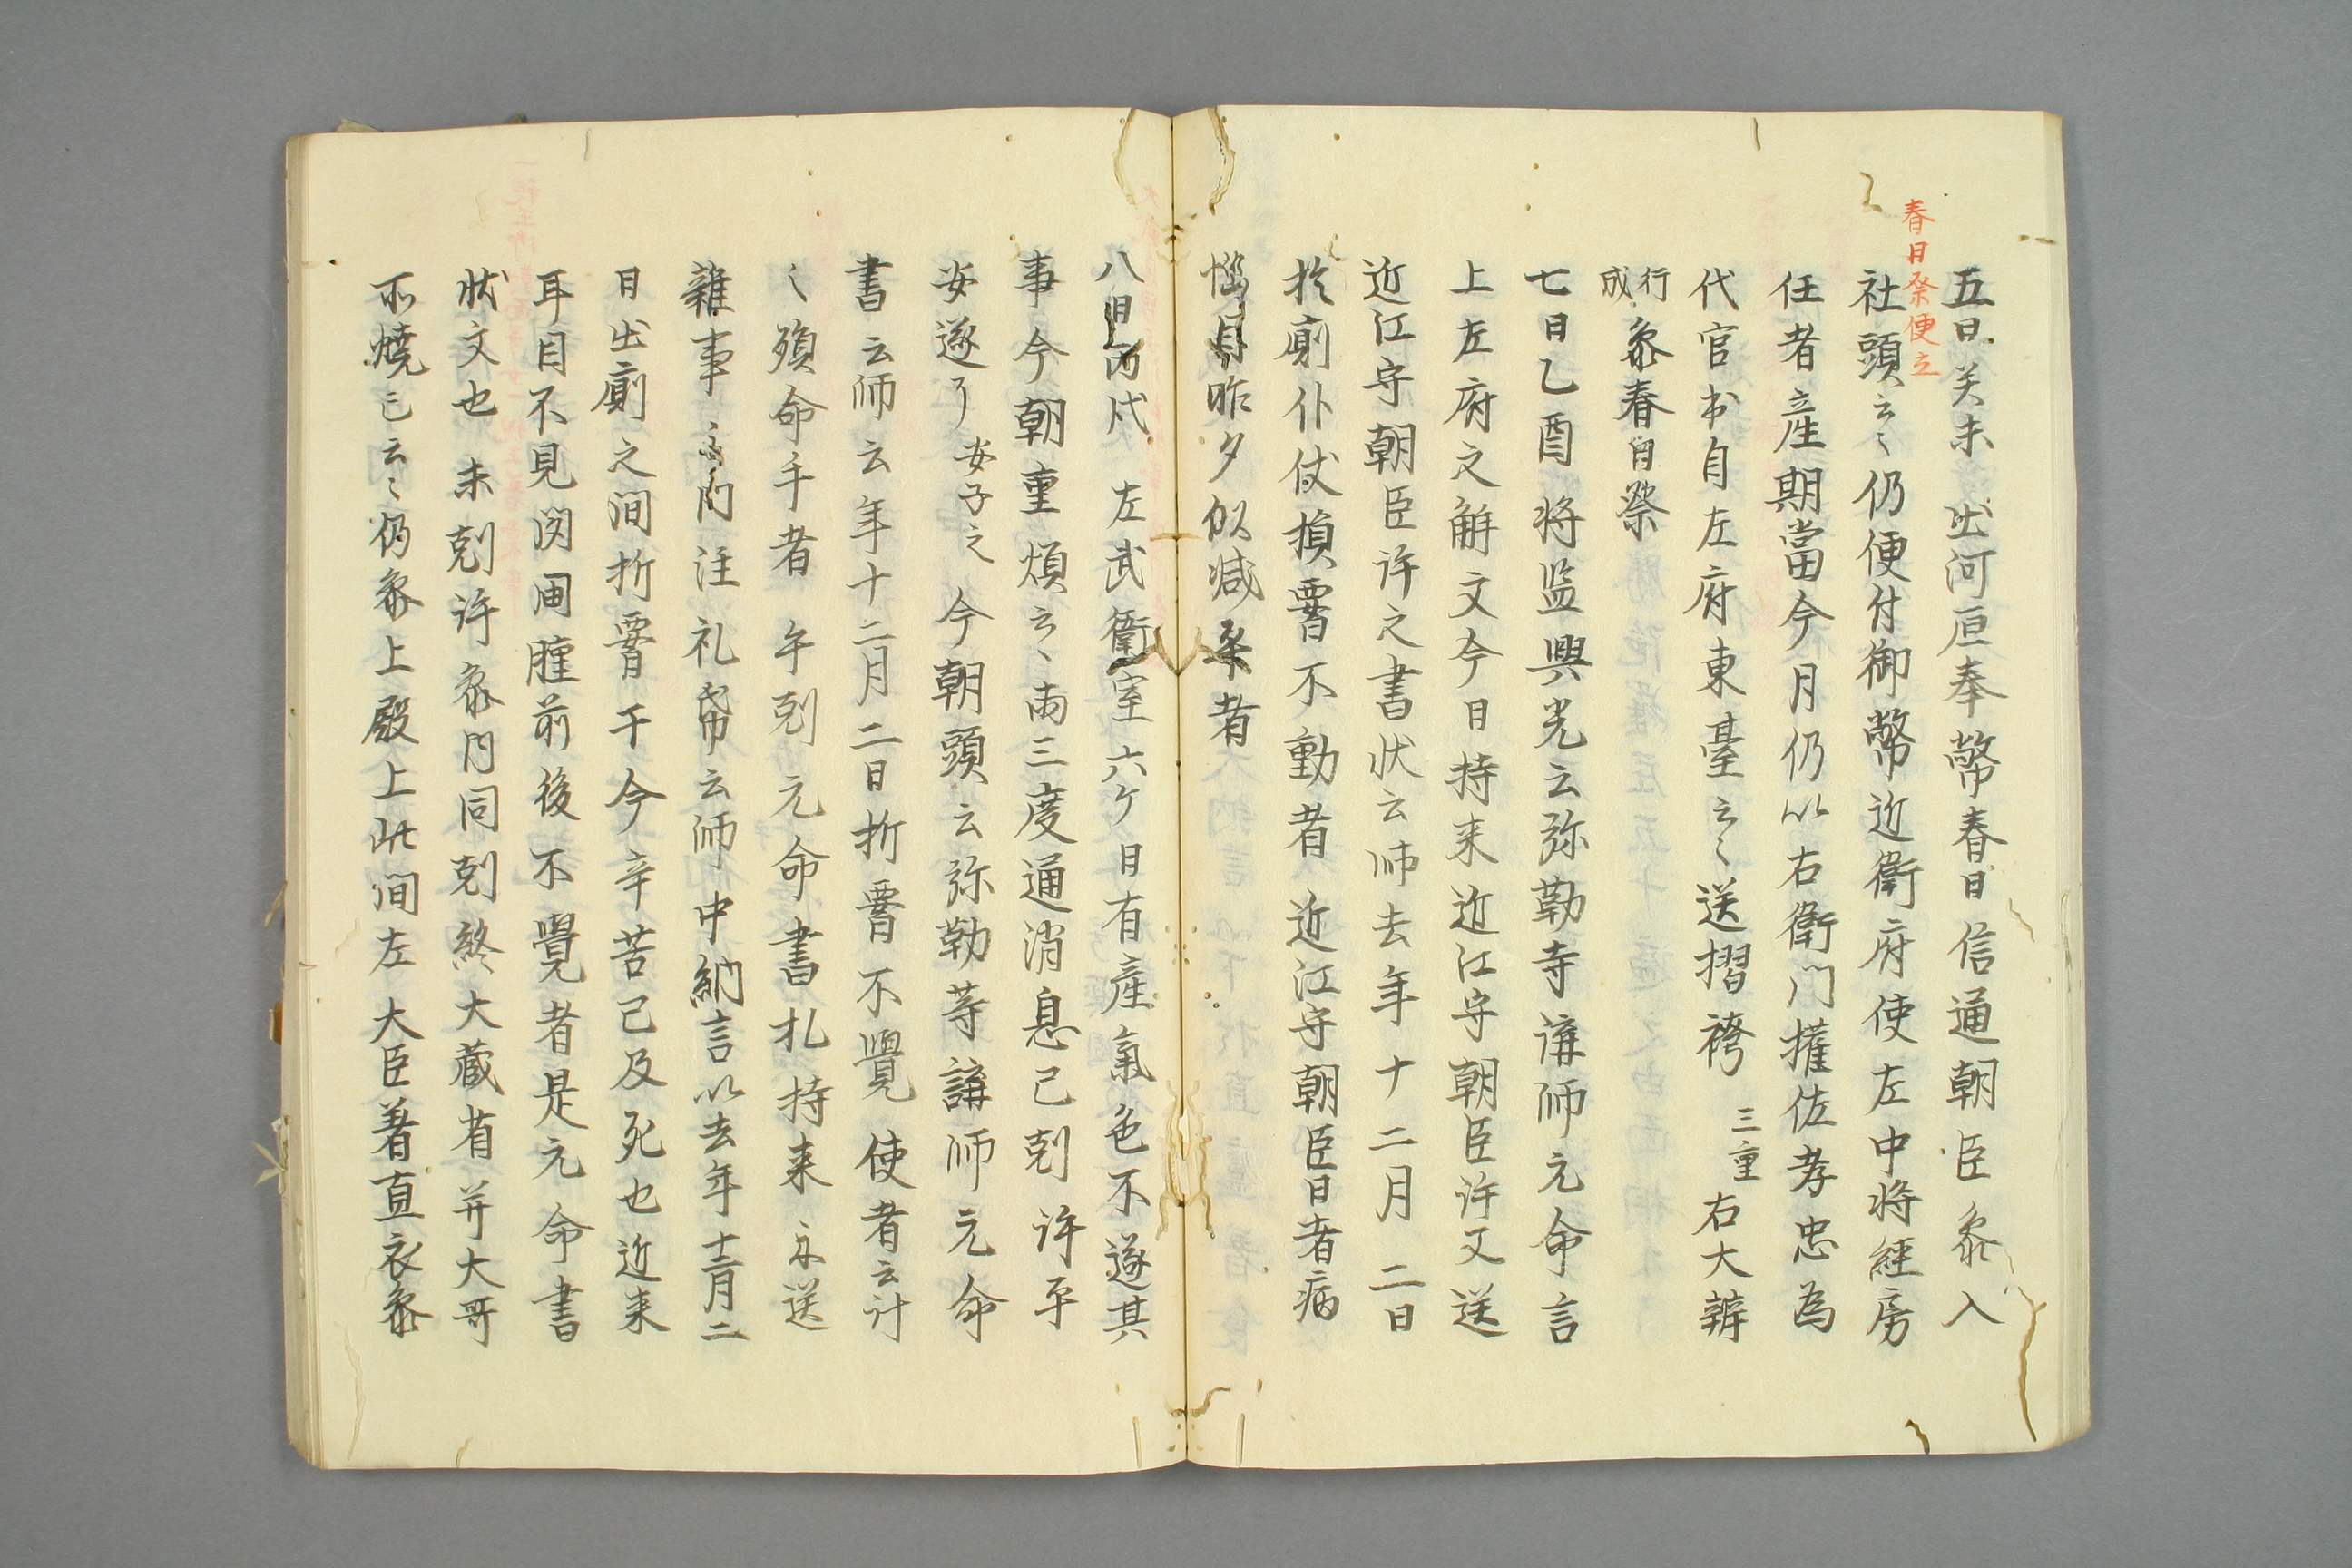 春日祭使立
五日癸未 出河原奉幣春日信通朝臣参入
社頭云々仍便付御幣近衛府使左中将経房
任者産期當今月仍以右衛門権佐孝忠為
代官出自左府東臺云々送摺袴三重右大辨
行成参春日祭
七日乙酉 将監興光云弥勒寺講師元命言
上左府之解文今日持来近江守朝臣許又送
近江守朝臣許之書状云師去年十二月二日
於廁仆伏損霄不動者近江守朝臣日者病
悩昨夕似减平者
八日丙戌 左武衛室六ケ月有産氣色不遂其
事今朝重煩云々両三度通消息已剋許平
安遂了女子之今朝頭云弥勒寺講師元命
書云師云年十二月二日折霄不覺使者云計
々殞命手者 午剋元命書札持来亦送
雑事 門注礼帋云師中納言以去年十二月二
日出廁之間折霄于今辛苦已及死也近来
耳目不見閇開腫前後不覺者是元命書
状文也 未剋許参内同剋終大蔵省并大哥
所焼亡云々仍参上殿上此間左大臣著直衣参